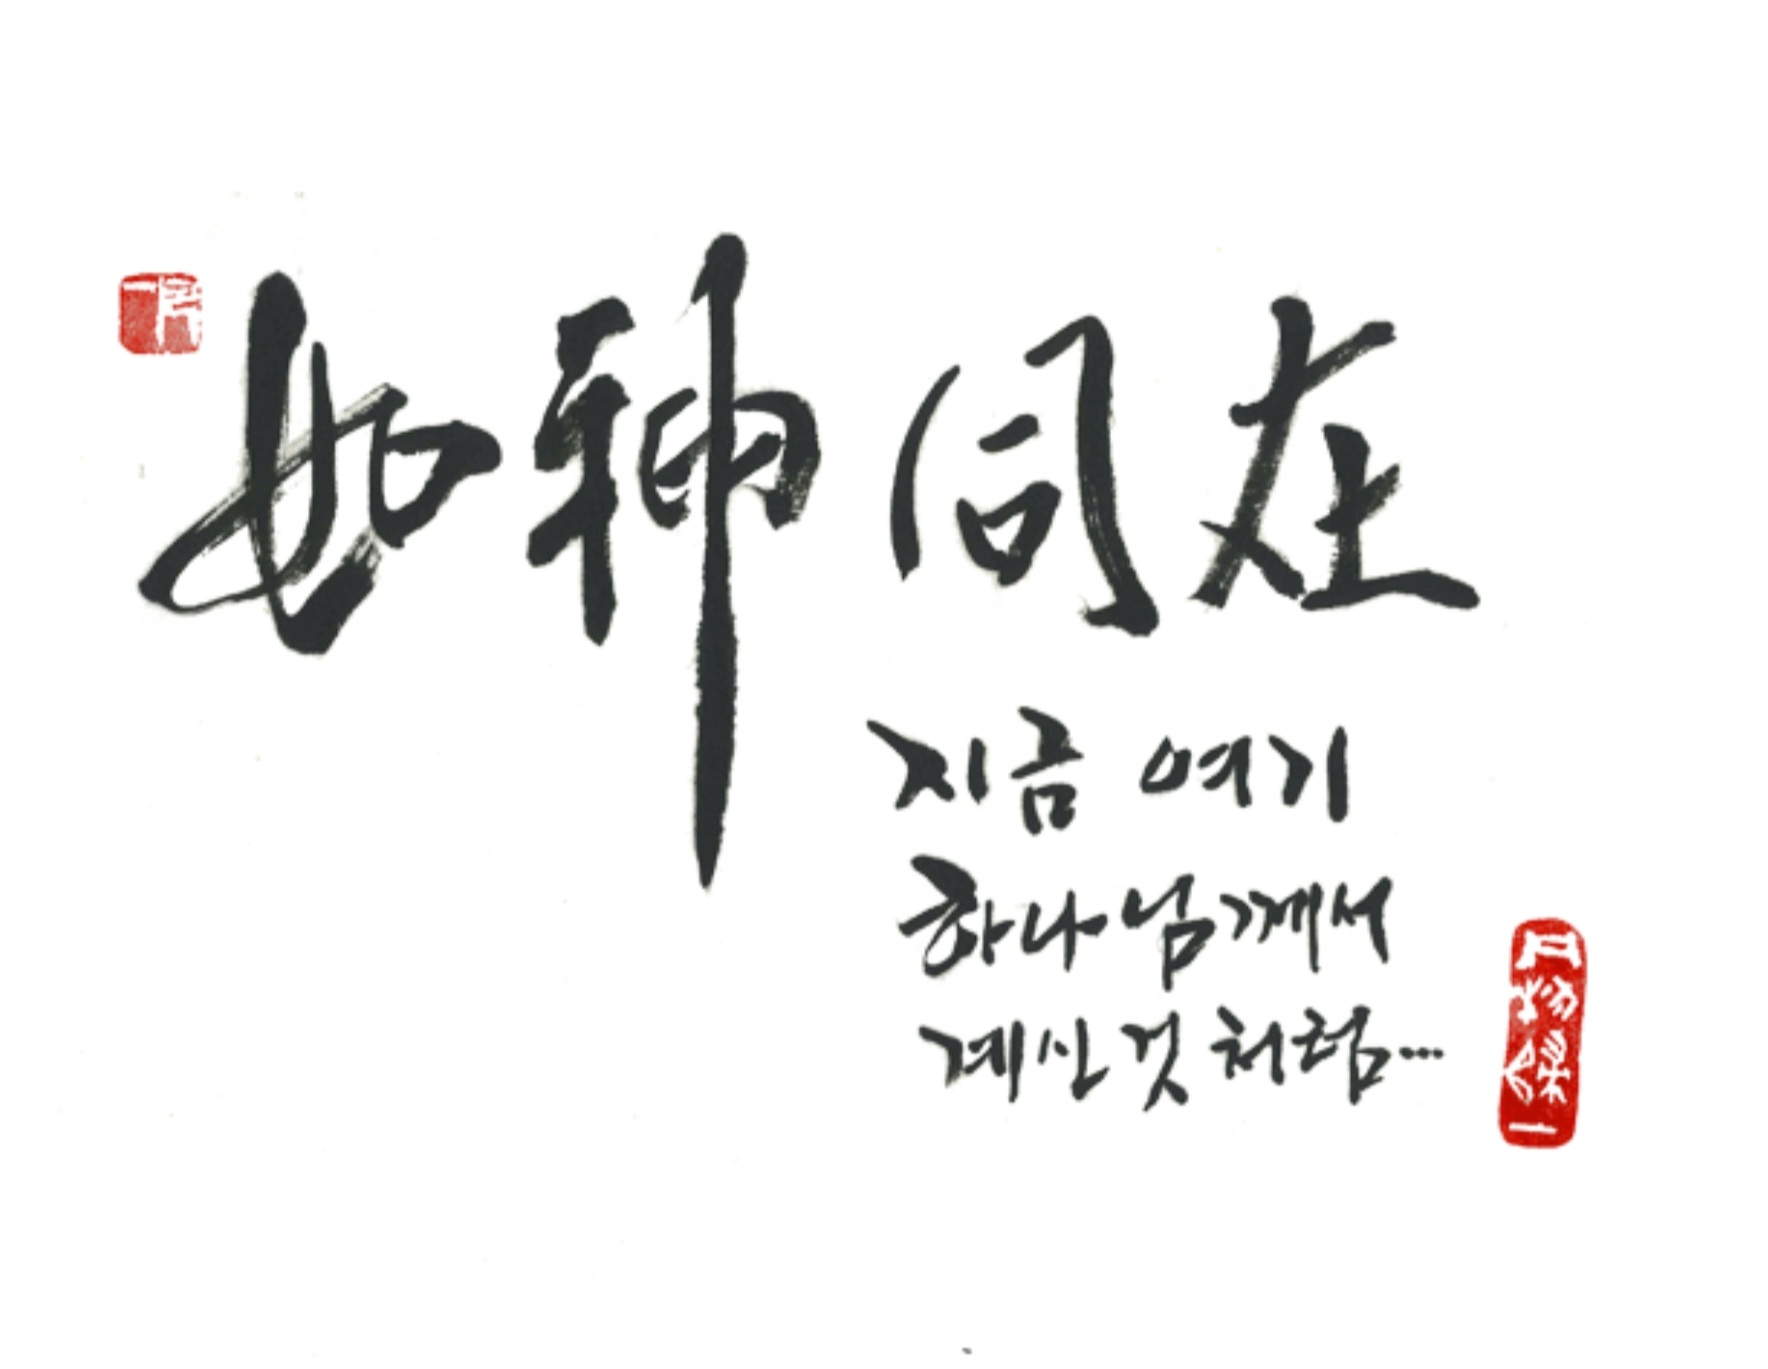 如神同在
지금 여기
하나님께서
계신것처럼...